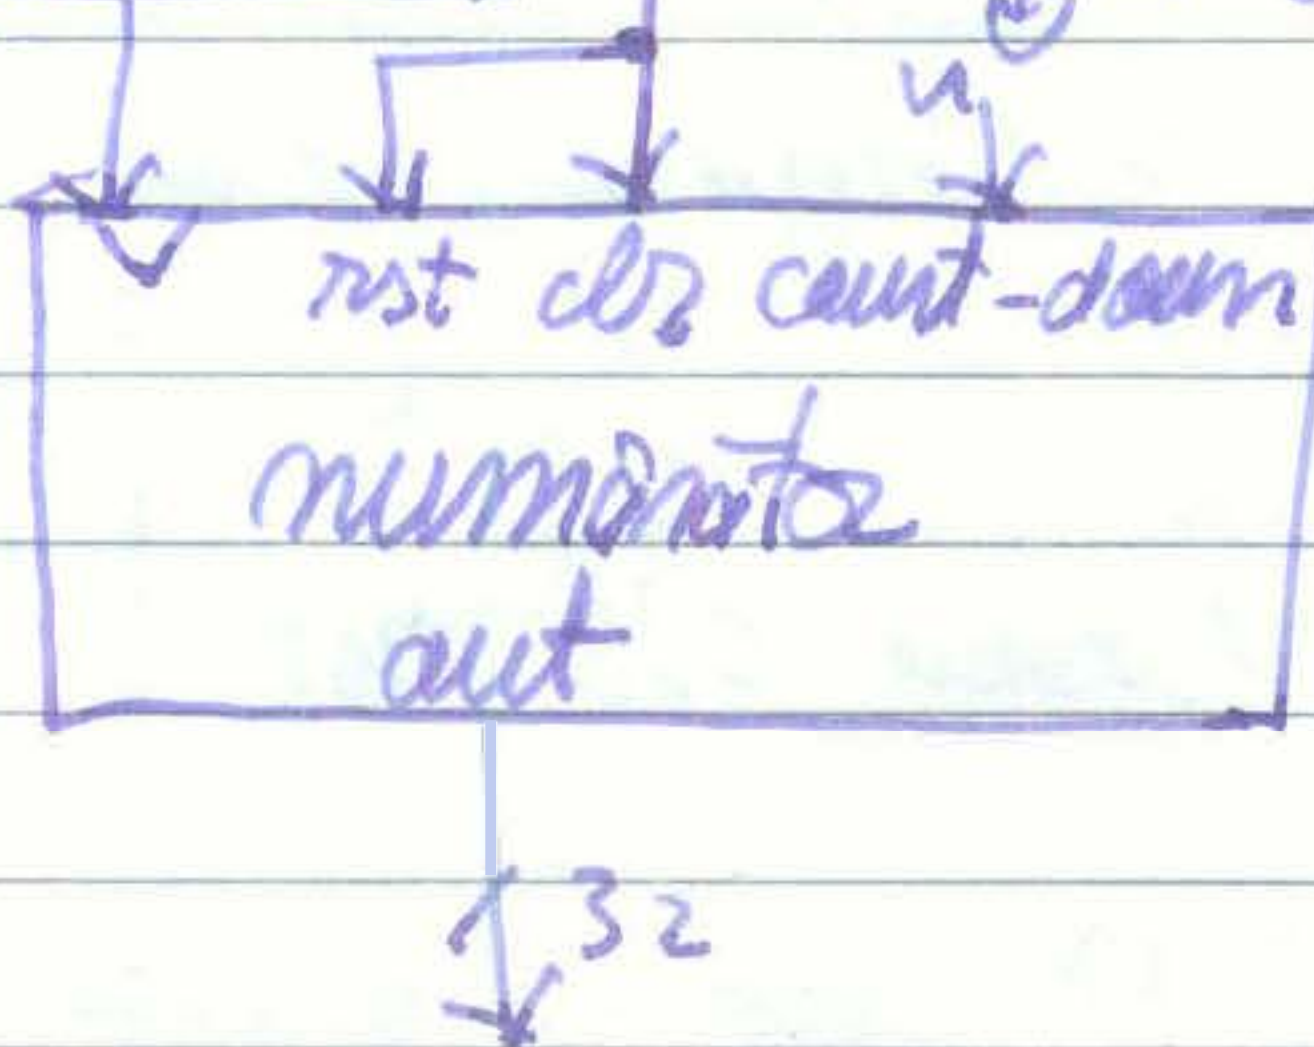 u
rst clr count-down
numărător
out
32